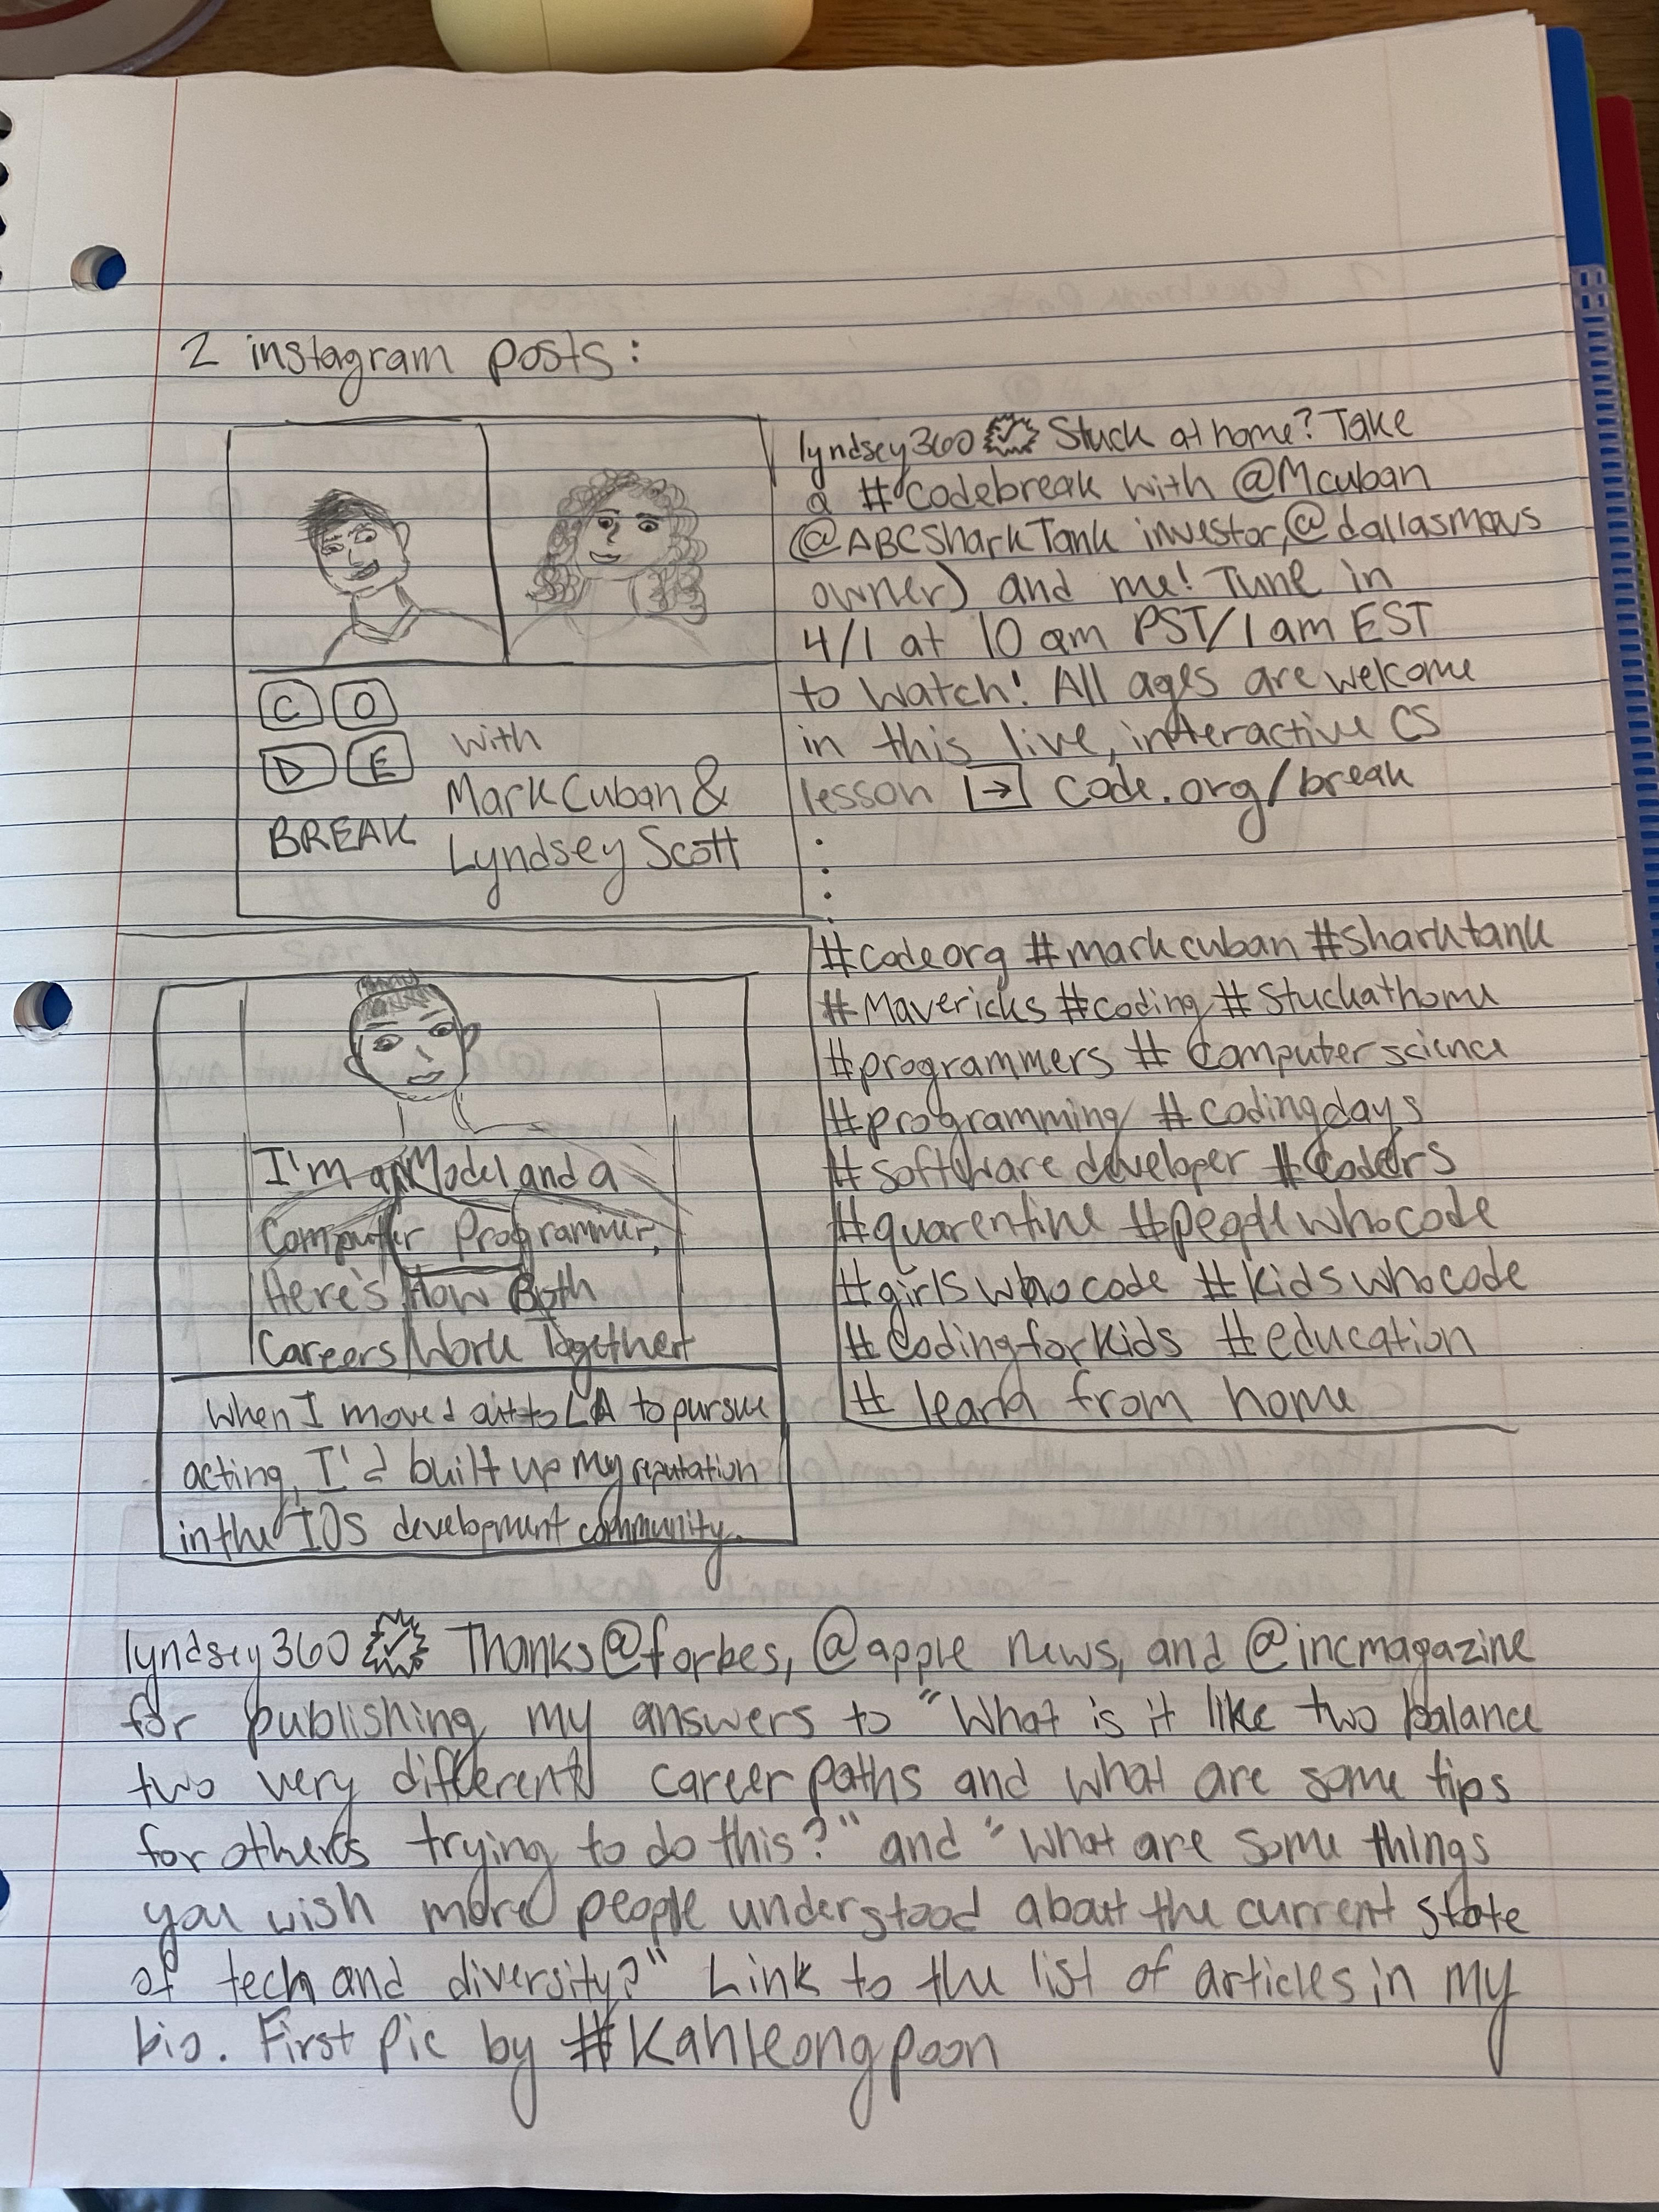 2 instagram posts:
C O
D E
BREAK
with
Mark Cuban &
Lyndsey Scott
lyndsey360 Stuck at home? Take
a #Codebreak with @Mcuban
(@ABCSharkTank investor,@dallasmavs
owner) and me! Tune in
4/1 at 10 am PST/1 am EST
to watch! All ages are welcome
in this live, interactive CS
lesson → code.org/break
.
.
.
#codeorg #markcuban #sharktank
#Mavericks #coding #Stuckathome
#programmers #Computerscience
#programming #codingdays
#softwaredeveloper #Coders
#quarentine #peoplewhocode
#girlswhocode #kidswhocode
#Codingforkids #education
#learn from home
I'm a Model and a
Computer Programmer,
Here's How Both
Careers Work Together
When I moved out to LA to pursue
acting, I'd built up my reputation
in the IOS development community.
lyndsey360 Thanks @forbes, @apple news, and @incmagazine
for publishing my answers to "What is it like two balance
two very different career paths and what are some tips
for others trying to do this?" and "What are some things
you wish more people understood about the current state
of tech and diversity?" Link to the list of articles in my
bio. First pic by #Kahleongpoon